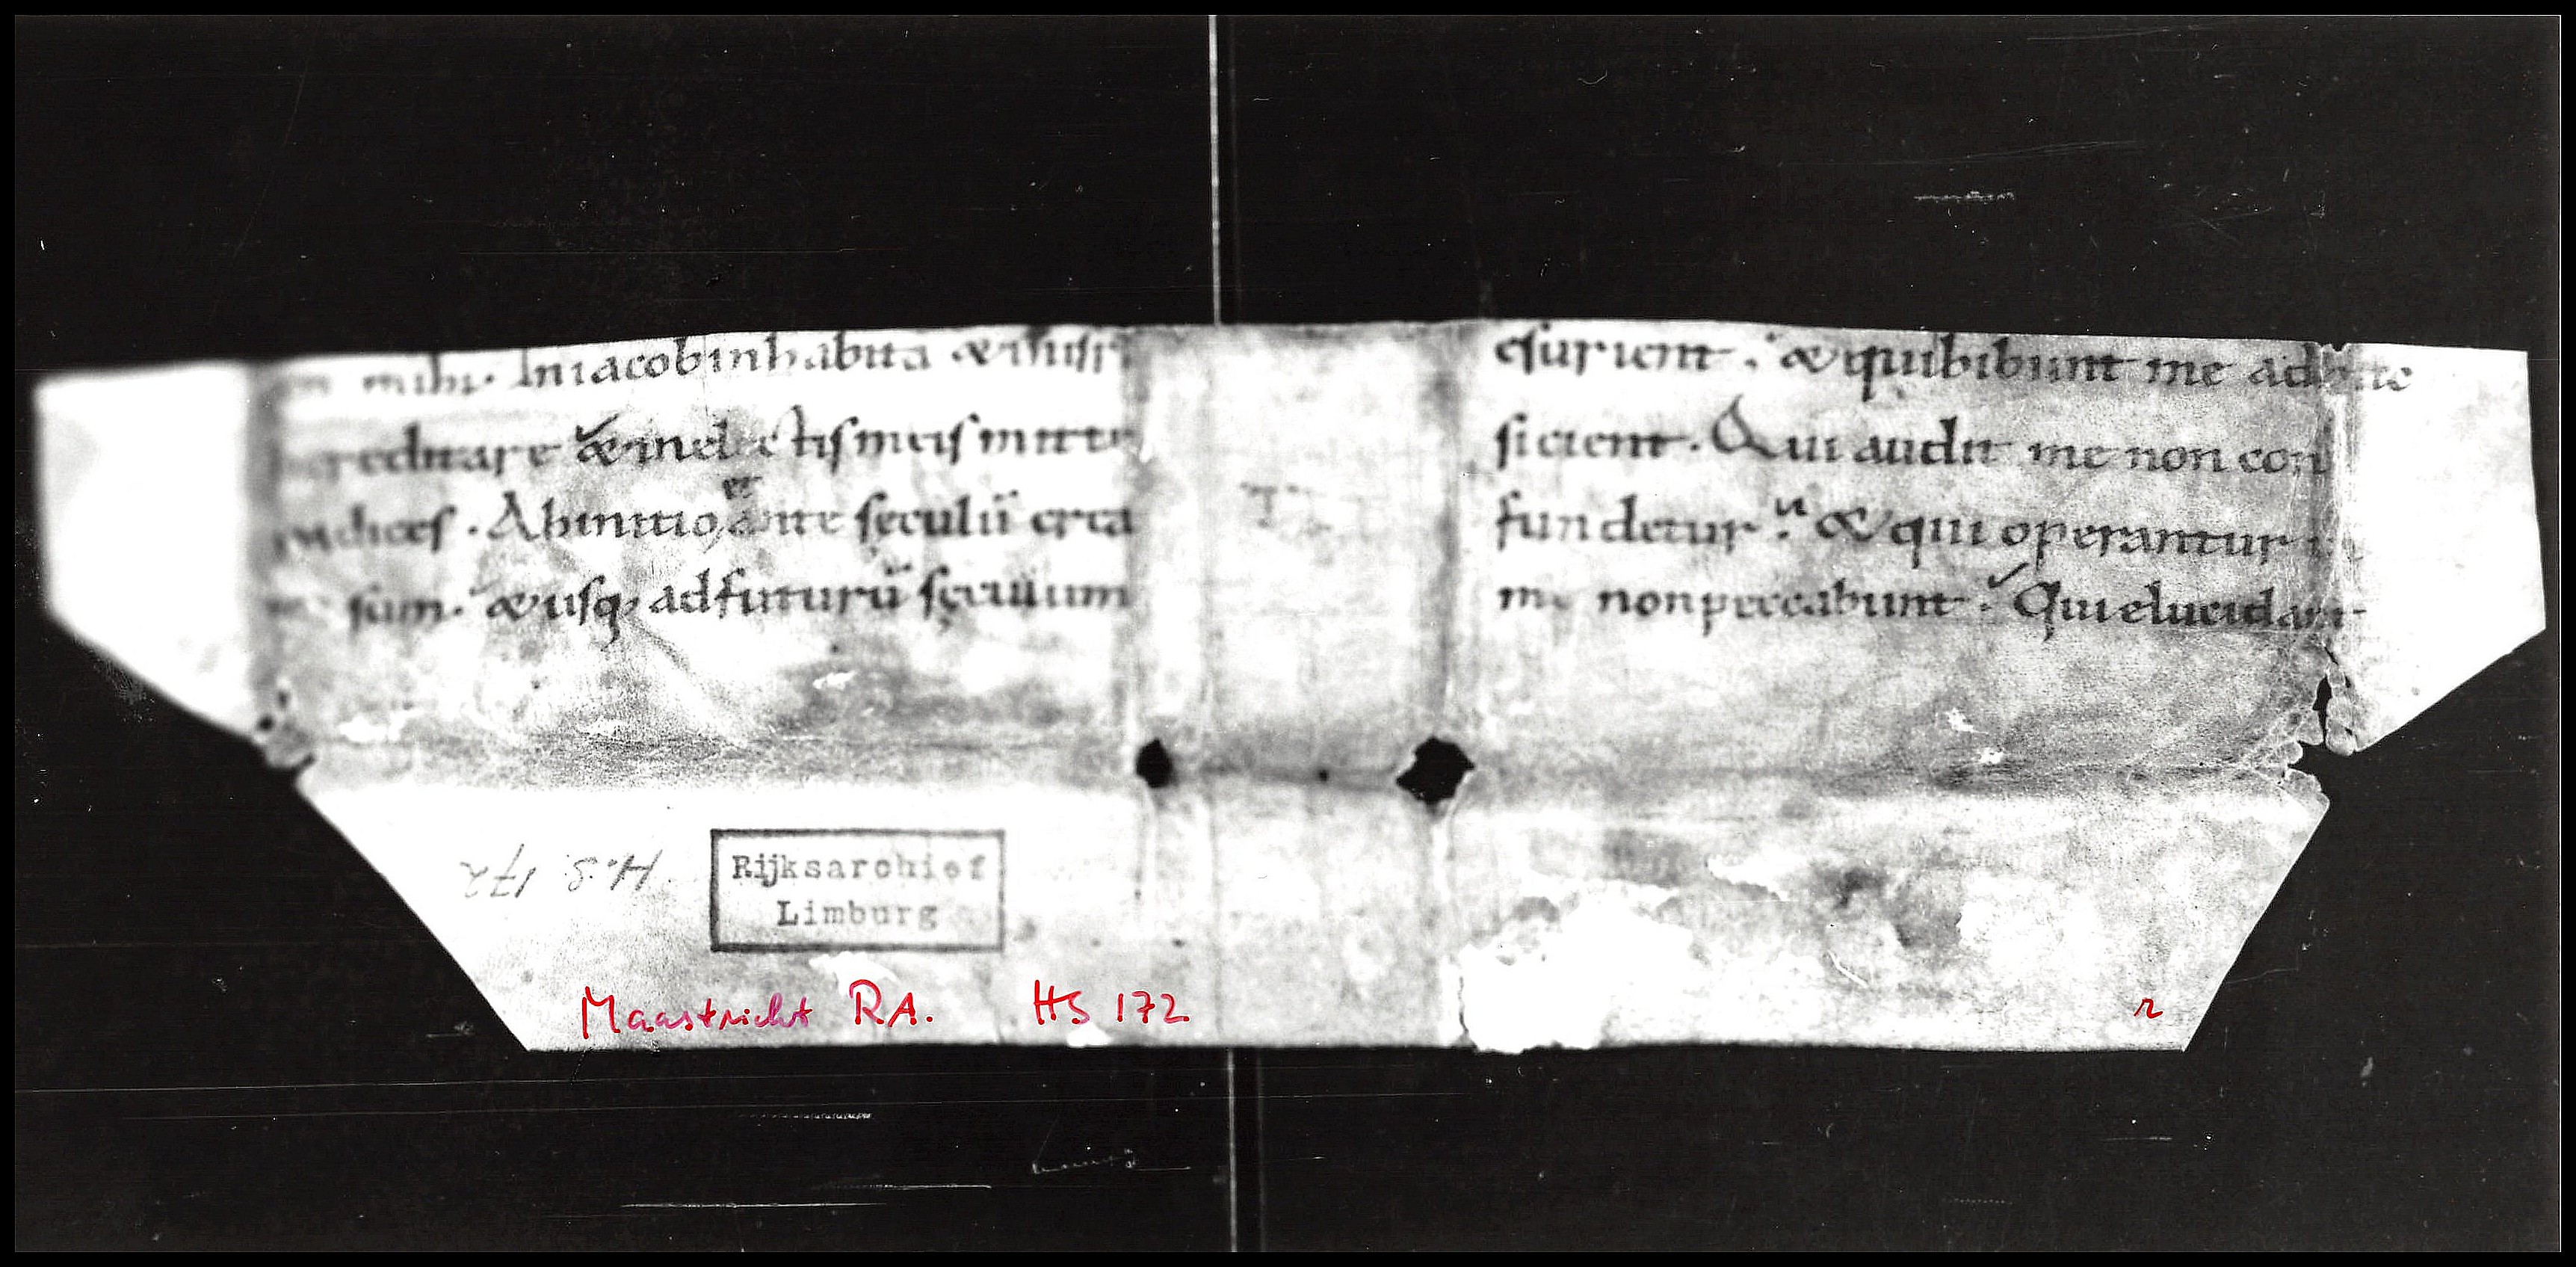 mihi. In iacob inhabita & inisrl
hereditare & in electis meis mitte
radices. Ab initio et ante sęculū crea
ta sum. & usq; ad futurū sęculum
esurient. & qui bibunt me adhuc
sicient. Qui audit me non con
fundetur. & qui operantur in
me non peccabunt. Qui elucidant
H.S. 172
Rijksarchief
Limburg
Maastricht R.A. HS 172
r